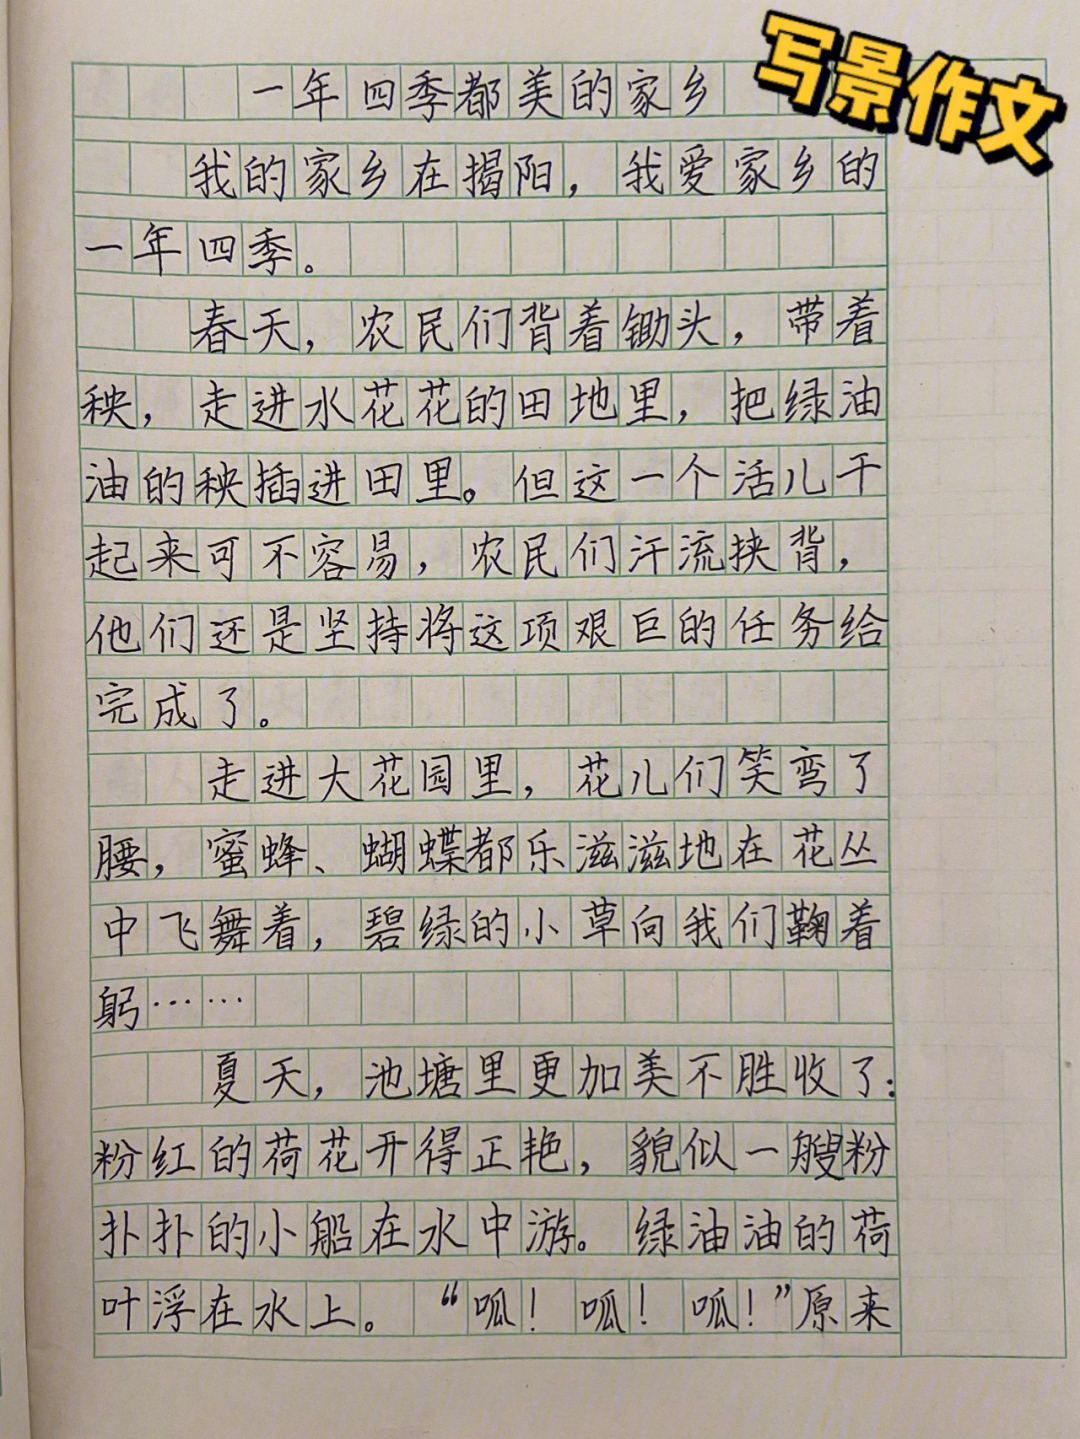 写景作文
一年四季都美的家乡
我的家乡在揭阳，我爱家乡的
一年四季。
春天，农民们背着锄头，带着
秧，走进水花花的田地里，把绿油
油的秧插进田里。但这一个活儿干
起来可不容易，农民们汗流挟背，
他们还是坚持将这项艰巨的任务给
完成了。
走进大花园里，花儿们笑弯了
腰，蜜蜂、蝴蝶都乐滋滋地在花丛
中飞舞着，碧绿的小草向我们鞠着
躬……
夏天，池塘里更加美不胜收了：
粉红的荷花开得正艳，貌似一艘粉
扑扑的小船在水中游。绿油油的荷
叶浮在水上。“呱！呱！呱！”原来